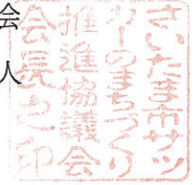 会
人
さいたま市サッ
カーのまちづくり
推進協議会
会長之印